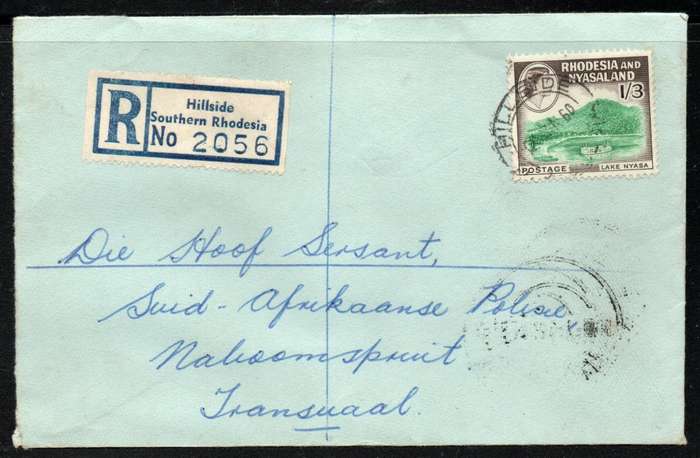 R
Hillside
Southern Rhodesia
No 2056
RHODESIA AND
NYASALAND
1/3
POSTAGE LAKE NYASA
Die Hoof Sersant,
Suid-Afrikaanse Polisie
Naboomspruit
Transvaal.